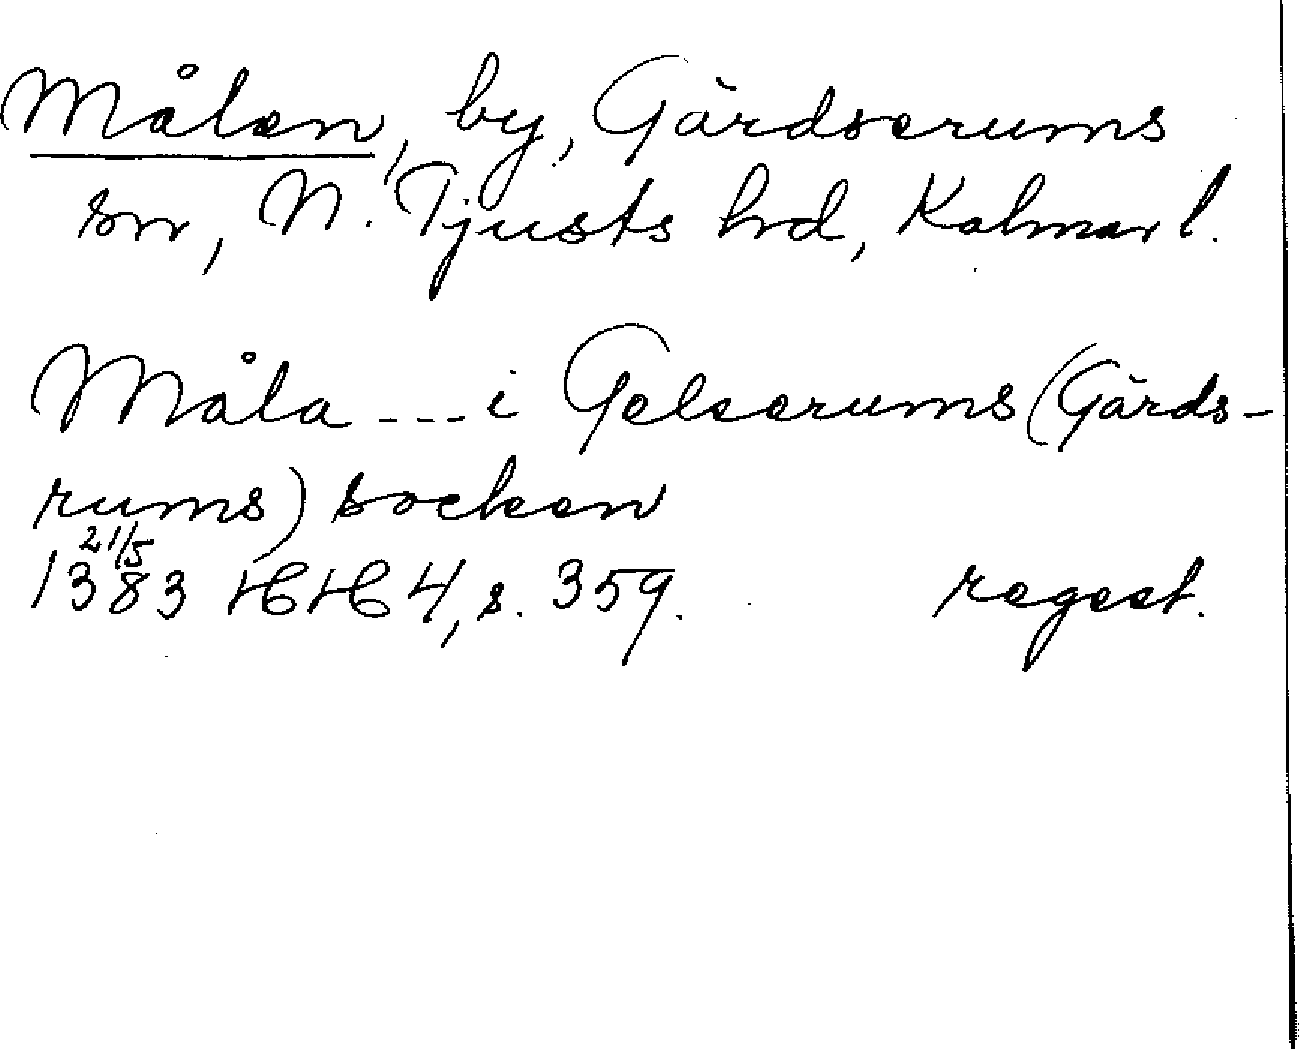 Målen, by, Gärdserums
sn, N. Tjusts hd, Kalmar l.
Måla --- i Gelserums (Gärds-
rums) socken
21/5
1383 HH 4, s. 359. regest.